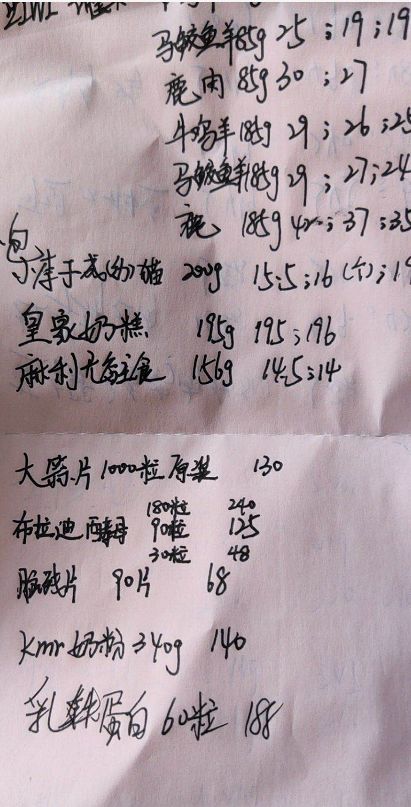 ZIWI
马鲛鱼羊85g 25；19；19
鹿肉 85g 30；27
牛鸡羊185g 29；26；25
马鲛鱼羊185g 29；27；24
鹿 185g 42；37；35
包
200g 15.5；16（六）；19
皇家奶糕 195g 19.5；196
麻利无谷主食 156g 14.5；14
大蒜片1000粒原装 130
180粒 240
布拉迪酵母 90粒 125
30粒 48
脲碱片 90片 68
kmr奶粉340g 140
乳铁蛋白60粒 188